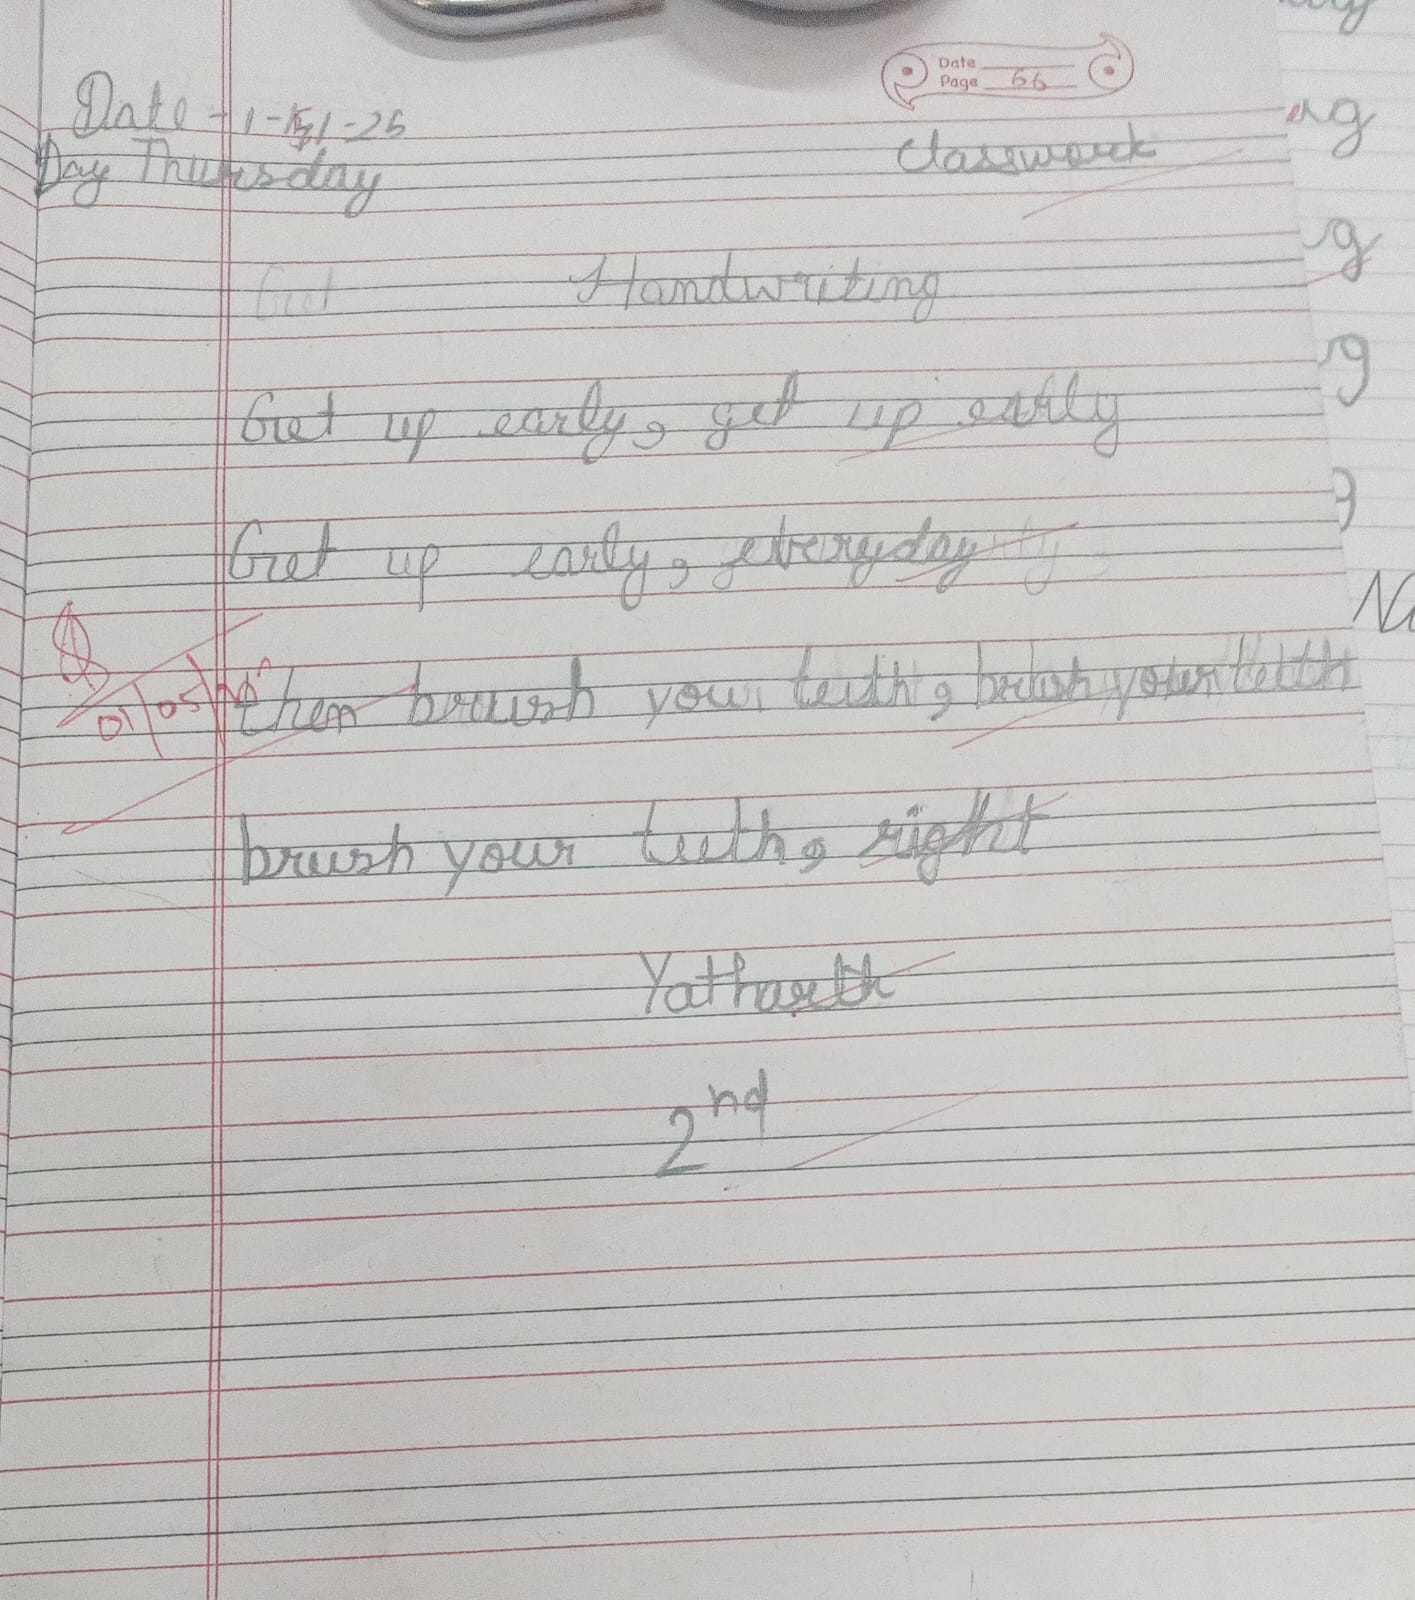 Date
Page 66
Date - 1-5-25
Day Thursday
Classwork
Handwriting
Get up early, get up early
Get up early, everyday
then brush your teeth, brush your teeth
01/05/25
brush your teeth, right
Yatharth
2nd